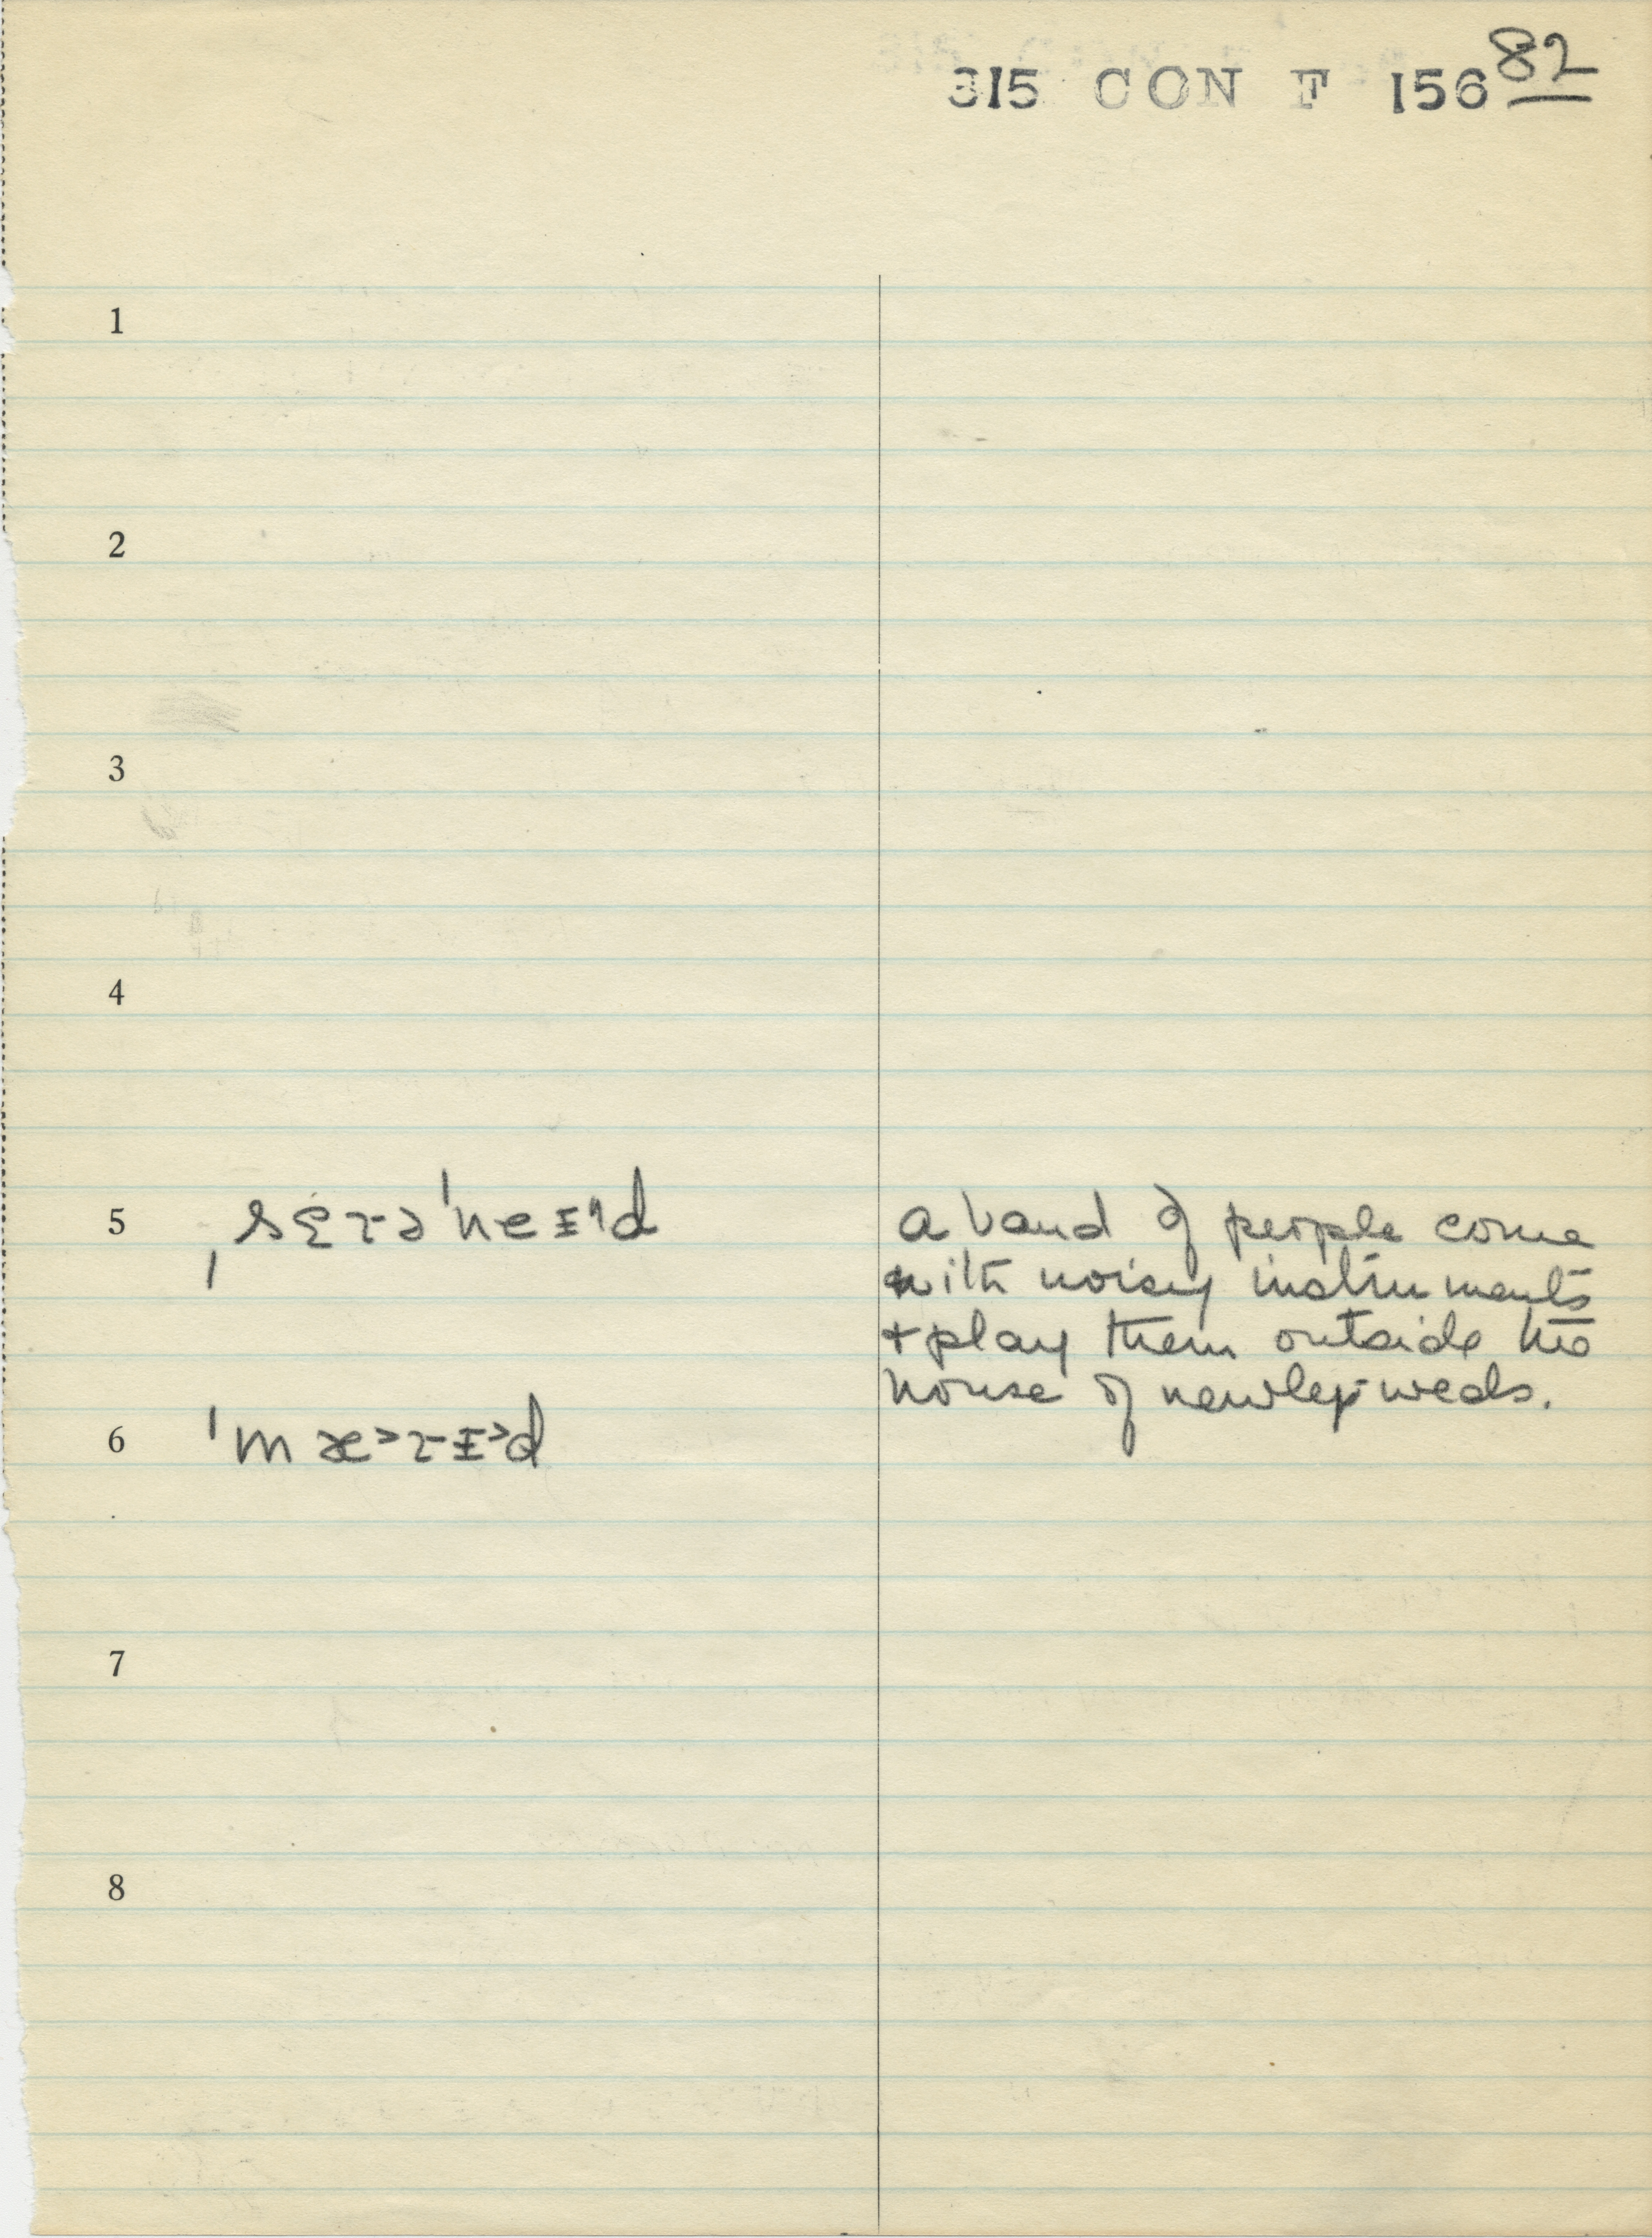 315 CON F 156 82
1
2
3
4
5 ˌsɛɾəˈneɪd a band of people come
with noisy instruments
+ play them outside the
house of newley-weds.
6 ˈmæ˃ɾɪ˃d
7
8